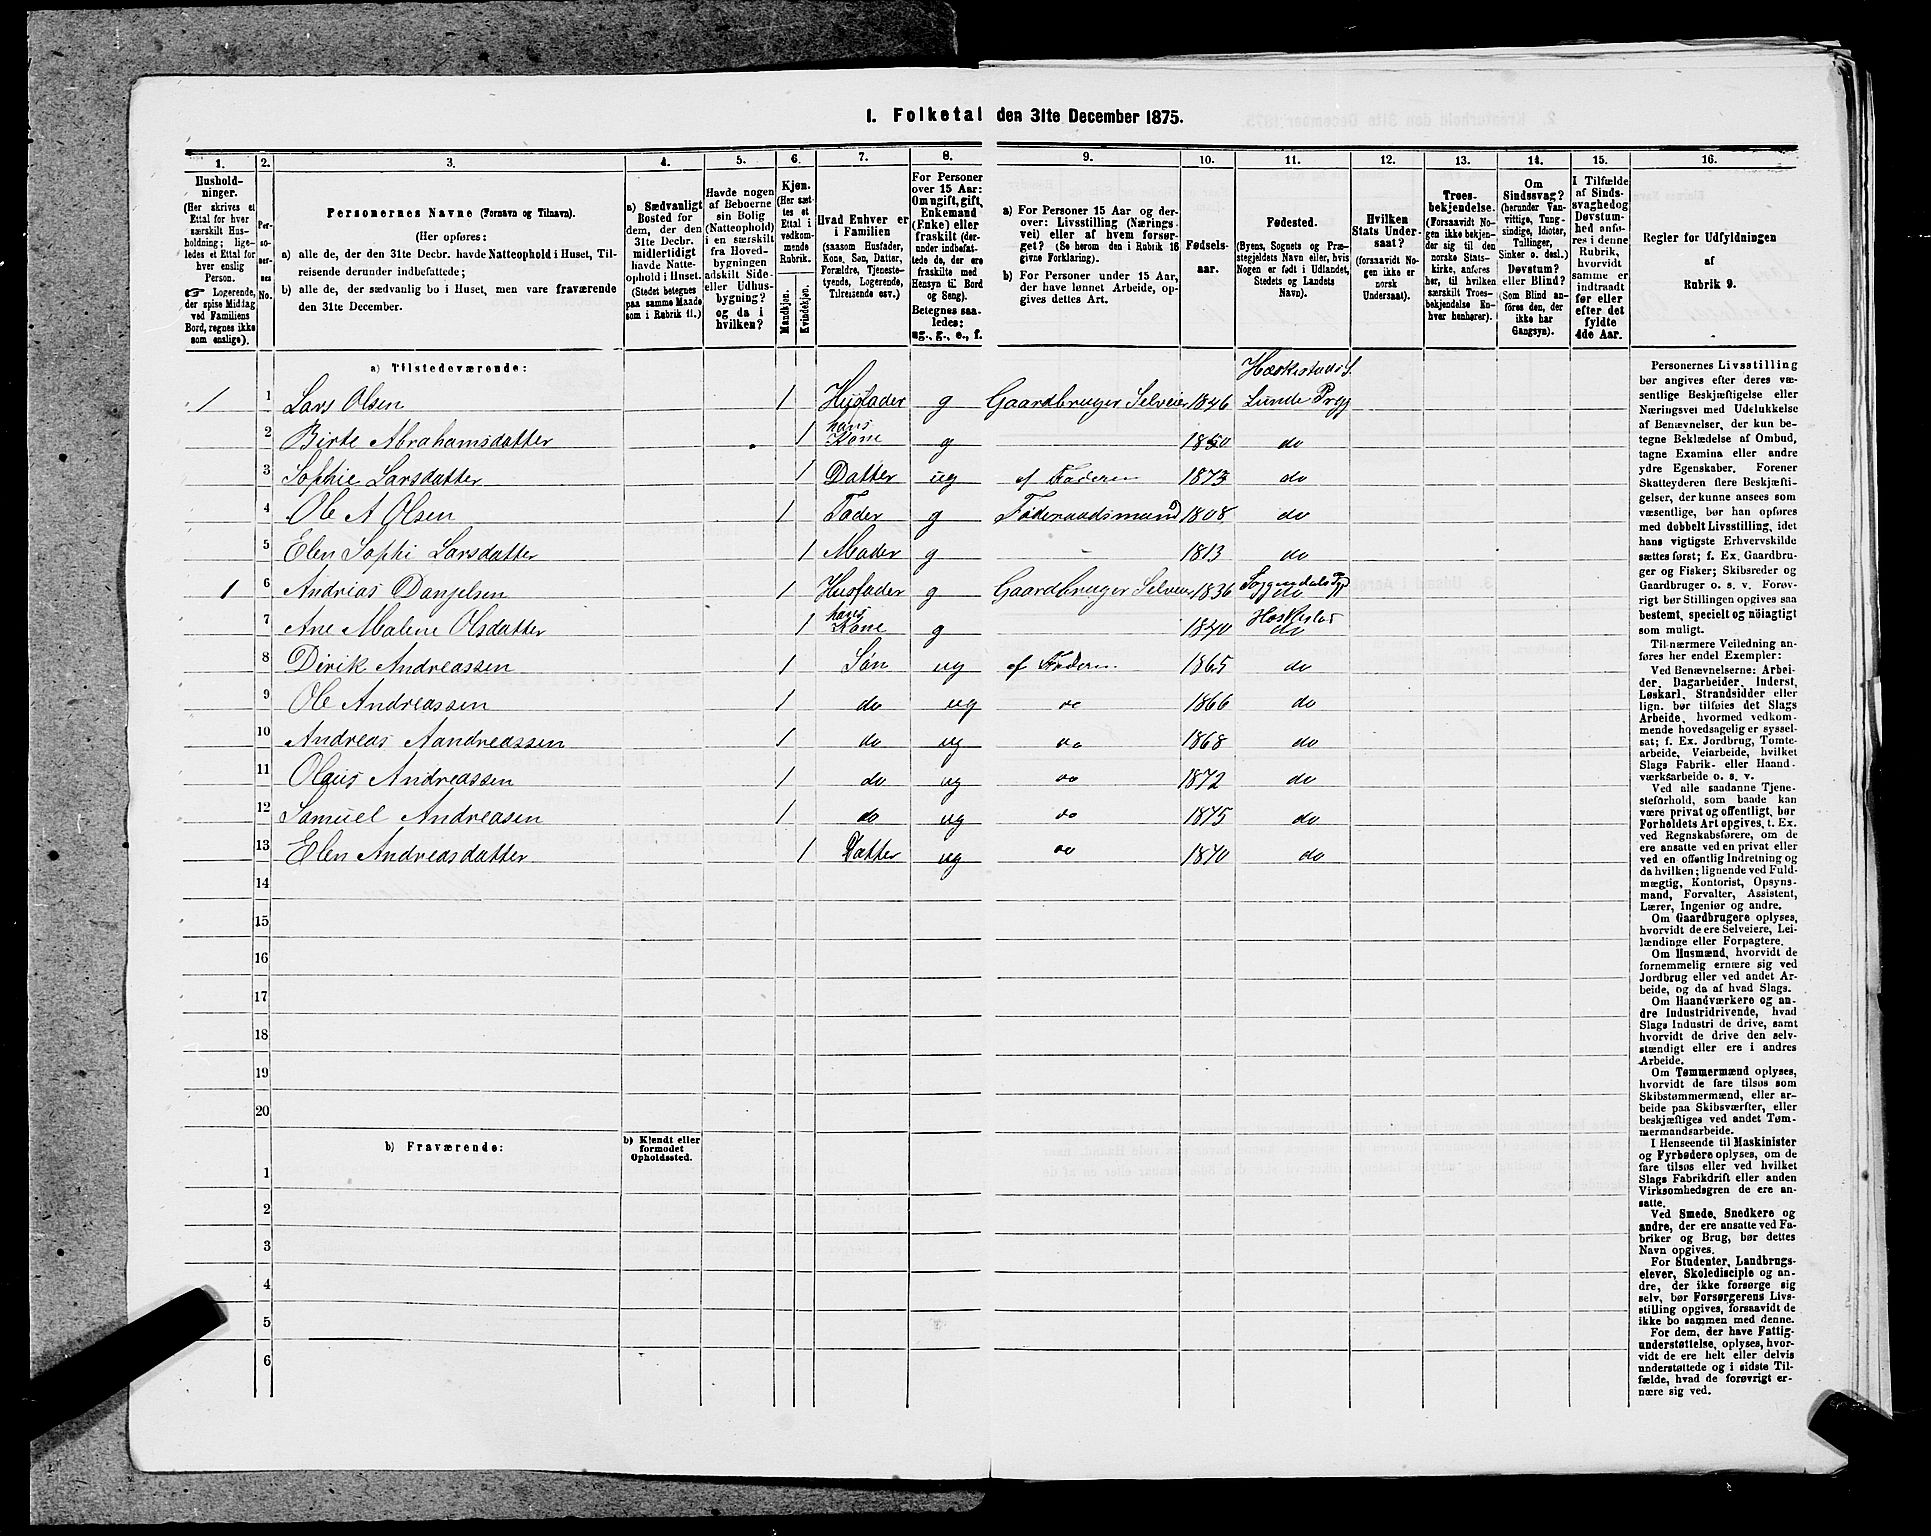 1. Folketal den 31te December 1875.
1. 2. 3. 4. 5. 6. 7. 8. 9. 10. 11. 12. 13. 14. 15. 16.
Hushold-
ninger.
(Her skrives et
Ettal for hver
særskilt Hus-
holdning; lige-
ledes et Ettal for
hver enslig
Person.
☞ Logerende,
der spise Middag
ved Familiens
Bord, regnes ikke
som enslige).
Per-
so-
ner-
nes
No.
Personernes Navne (Fornavn og Tilnavn).
(Her opføres:
a) alle de, der den 31te Decbr. havde Natteophold i Huset, Til-
reisende derunder indbefattede;
b) alle de, der sædvanlig bo i Huset, men vare fraværende
den 31te December.
a) Sædvanligt
Bosted for
dem, der den
31te Decbr.
midlertidigt
havde Natte-
ophold i Huset.
(Stedet betegnes
paa samme Maade
som i Rubrik 11.)
Havde nogen
af Beboerne
sin Bolig
(Natteophold)
i en særskilt
fra Hoved-
bygningen
adskilt Side-
eller Udhus-
bygning?
og da i
hvilken?
Kjøn.
(Her sæt-
tes et
Ettal i
vedkom-
mende
Rubrik.
Mandkjøn.
Kvindekjøn.
Hvad Enhver er
i Familien
(saasom Husfader,
Kone, Søn, Datter,
Forældre, Tjeneste-
tyende, Logerende,
Tilreisende osv.)
For Personer
over 15 Aar:
Om ugift, gift,
Enkemand
(Enke) eller
fraskilt (der-
under indbefat-
tede de, der ere
fraskilte med
Hensyn til Bord
og Seng).
Betegnes saa-
ledes:
ug., g., e., f.
a) For Personer 15 Aar og der-
over: Livsstilling (Nærings-
vei) eller af hvem forsør-
get? (Se herom den i Rubrik 16
givne Forklaring).
b) For Personer under 15 Aar,
der have lønnet Arbeide, op-
gives dettes Art.
Fødsels-
aar.
Fødested.
(Byens, Sognets og Præ-
stegjeldets Navn eller, hvis
Nogen er født i Udlandet,
Stedets og Landets
Navn).
Hvilken
Stats Under-
saat?
(forsaavidt No-
gen ikke er
norsk
Undersaat).
Troes-
bekjendelse.
(Forsaavidt No-
gen ikke bekjen-
der sig til den
norske Stats-
kirke, anføres
her, til hvilken
særskilt Troes-
bekjendelse En-
hver henhører).
Om
Sindssvag?
(herunder Van-
vittige, Tung-
sindige, Idioter,
Tullinger,
Sinker o. desl.)
Døvstum?
eller Blind?
(Som Blind an-
føres den, der
ikke har
Gangsyn).
I Tilfælde
af Sinds-
svaghed og
Døvstum-
hed anfø-
res i denne
Rubrik,
hvorvidt
samme er
indtraadt
før eller
efter det
fyldte
4de Aar.
Regler for Udfyldningen
af
Rubrik 9.
a) Tilstedeværende:
Heskestad S.
1 1 Lars Olsen 1 Husfader g Gaardbruger Selveier 1846 Lunde Prgj
2 Birte Abrahamsdatter 1 hans Kone g 1850 do
3 Sophie Larsdatter 1 Datter ug af Faderen 1873 do
4 Ole A Olsen 1 Fader g Føderaadsmand 1808 do
5 Elen Sophi Larsdatter 1 Moder g - 1813 do
1 6 Andrias Danjelsen 1 Husfader g Gaardbruger Selveier 1836
7 Ane Malene Olsdatter 1 hans Kone g 1840 Heskestad do
8 Dirik Andreassen 1 Søn ug af Faderen 1865 do
9 Ole Andreassen 1 do ug do 1866 do
10 Andreas Aandreassen 1 do ug do 1868 do
11 Olaus Andreassen 1 do ug do 1872 do
12 Samuel Andreasen 1 do ug do 1875 do
13 Elen Andreasdatter 1 Datter ug do 1870 do
14
15
16
17
18
19
20
b) Fraværende:
b) Kjendt eller
formodet
Opholdssted.
1
2
3
4
5
6
Personernes Livsstilling
bør angives efter deres væ-
sentlige Beskjæftigelse eller
Næringsvei med Udelukkelse
af Benævnelser, der kun be-
tegne Beklædelse af Ombud,
tagne Examina eller andre
ydre Egenskaber. Forener
Skatteyderen flere Beskjæfti-
gelser, der kunne ansees som
væsentlige, bør han opføres
med dobbelt Livsstilling, idet
hans vigtigste Erhvervskilde
sættes først; f. Ex. Gaardbru-
ger og Fisker; Skibsreder og
Gaardbruger o. s. v. Forøv-
rigt bør Stillingen opgives saa
bestemt, specielt og nöiagtigt
som muligt.
Til nærmere Veiledning an-
føres her endel Exempler:
Ved Benævnelserne: Arbei-
der, Dagarbeider, Inderst,
Løskarl, Strandsidder eller
lign. bør tilføies det Slags
Arbeide, hvormed vedkom-
mende hovedsagelig er syssel-
sat; f. Ex. Jordbrug, Tomte-
arbeide, Veiarbeide, hvilket
Slags Fabrik- eller Haand-
værksarbeide o. s. v.
Ved alle saadanne Tjene-
steforhold, som baade kan
være privat og offentligt, bør
Forholdets Art opgives, t. Ex.
ved Regnskabsførere, om de
ere ansatte ved en privat eller
ved en offentlig Indretning og
da hvilken; ligeledes ved Fuld-
mægtig, Kontorist, Opsyns-
mand, Forvalter, Assistent,
Lærer, Ingeniør og andre.
Om Gaardbrugere oplyses,
hvorvidt de ere Selveiere, Lei-
lændinge eller Forpagtere.
Om Husmænd, hvorvidt de
fornemmelig ernære sig ved
Jordbrug eller ved andet Ar-
beide, og da af hvad Slags.
Om Haandværkere og an-
dre Industridrivende, hvad
Slags Industri de drive, samt
hvorvidt de drive den selv-
stændigt eller ere i andres
Arbeide.
Om Tømmermænd oplyses,
hvorvidt de fare tilsøs som
Skibstømmermænd, eller ar-
beide paa Skibsværfter, eller
beskjæftiges ved andet Tøm-
mermandsarbeide.
I Henseende til Maskinister
og Fyrbødere oplyses, om de
fare tilsøs eller ved hvilket
Slags Fabrikdrift eller anden
Virksomhedsgren de ere an-
satte.
Ved Smede, Snedkere og
andre, der ere ansatte ved Fa-
briker og Brug, bør dettes
Navn opgives.
For Studenter, Landbrugs-
elever, Skoledisciple og an-
dre, der ikke forsørge sig
selv, bør Forsørgerens Livs-
stilling opgives, forsaavidt de
ikke bo sammen med denne.
For dem, der have Fattig-
understøttelse, oplyses, hvor-
vidt de ere helt eller delvis
understøttede og i sidste Til-
fælde, hvad de forøvrigt er-
nære sig ved.